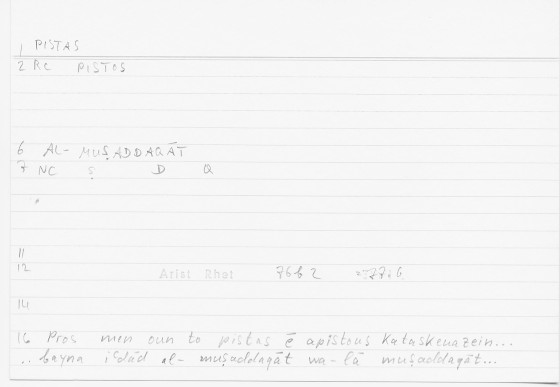 1 PISTAS
2 RC PISTOS
6 AL- MUṢADDAQĀT
7 NC Ṣ D Q
11
12 Arist Rhet 76b 2 = 77:6
14
16 Pros men oun to pistas ē apistous kataskeuazein...
.. bayna iṣdād al- muṣaddaqāt wa-lā muṣaddaqāt...